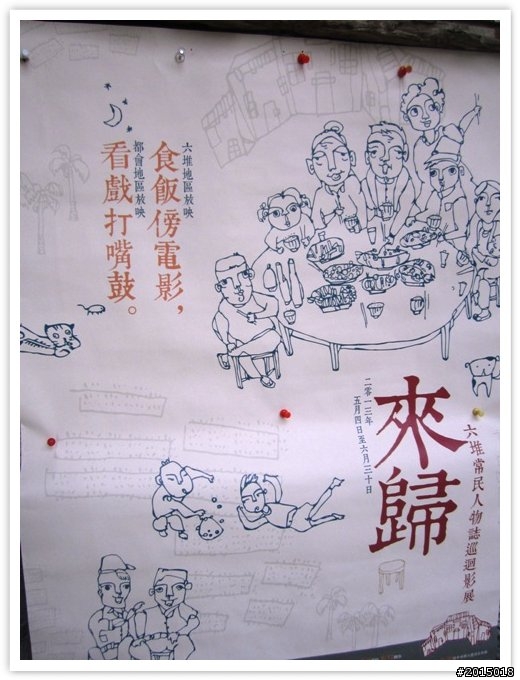 來歸
六堆常民人物誌巡迴影展
二零一三年
五月四日至六月三十日
六堆地區放映
食飯傍電影，
都會地區放映
看戲打嘴鼓。
#2015018